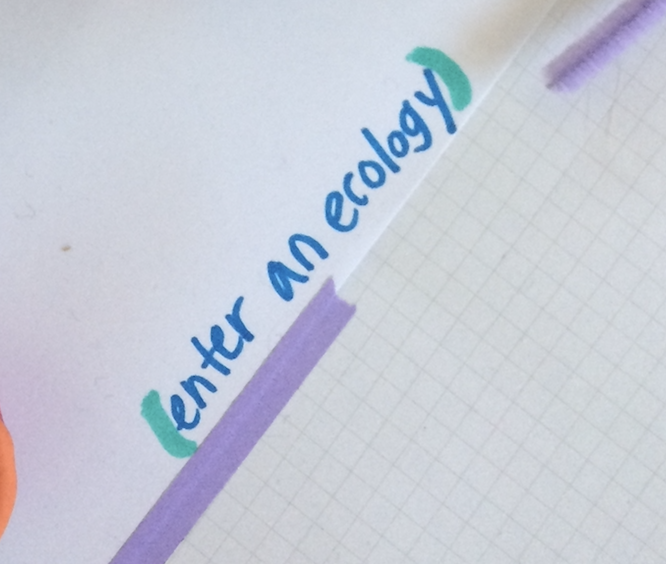 (enter an ecology)